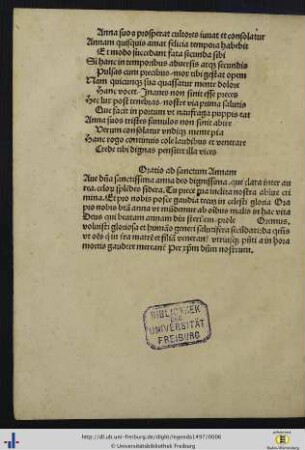 Anna suos prosperat cultores iuuat et consolatur
Annam quisquis amat felicia tempora habebit
Et modo succedunt fata secunda sibi
Si hanc in temporibus aduersis atqz secundis
Pulsas cum precibus mox tibi gestat opem
Nam quicunqz sua quassatur mente dolore
Hanc vocet Inanes non sinit esse preces
Hec lux post tenebras nostre via prima salutis
Que facit in portum vt naufraga puppis eat
Anna suos tristes famulos non sinit abire
Verum consolatur vndiqz mente pia
Hanc rogo continuis cole laudibus et venerare
Crede tibi dignas pensitet illa vices
Oratio ad sanctam Annam
Aue dña sanctissima anna deo dignissima, que clara inter au
rea, celoꝝ splēdes sidera, Tu prece pia
mina. Et pro nobis posce gaudia in celesti gloria Ora
pro nobis btā anna vt mūdemur ab oībus malis in hac vita
Deus qui beatam annam diu sterilem prole Oremus.
voluisti gloriosa et humāo generi salutifera fecūdari: da qm̄s
vt oēs q̇ in eius amore matrē et filiā venerant vtriusqz pn̄tia in hora
mortis gaudere mereant Per xpm̄ dn̄m nostrum.
BIBLIOTHEK
DER
UNIVERSITÄT
FREIBURG
http://dl.ub.uni-freiburg.de/diglit/legenda1497/0006
© Universitätsbibliothek Freiburg